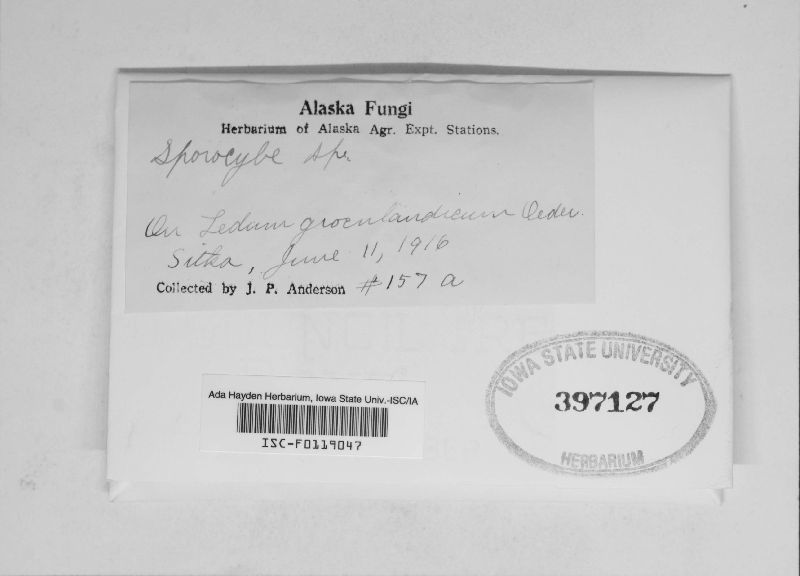 Alaska Fungi
Herbarium of Alaska Agr. Expt. Stations.
Sporocybe sp.
On Ledum groenlandicum Oeder.
Sitka, June 11, 1916
Collected by J. P. Anderson #157 a
IOWA STATE UNIVERSITY
397127
HERBARIUM
Ada Hayden Herbarium, Iowa State Univ.-ISC/IA
ISC-F0119047